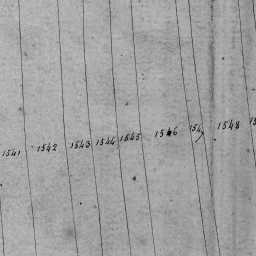 1541 1542 1543 1544 1545 1546 1547 1548